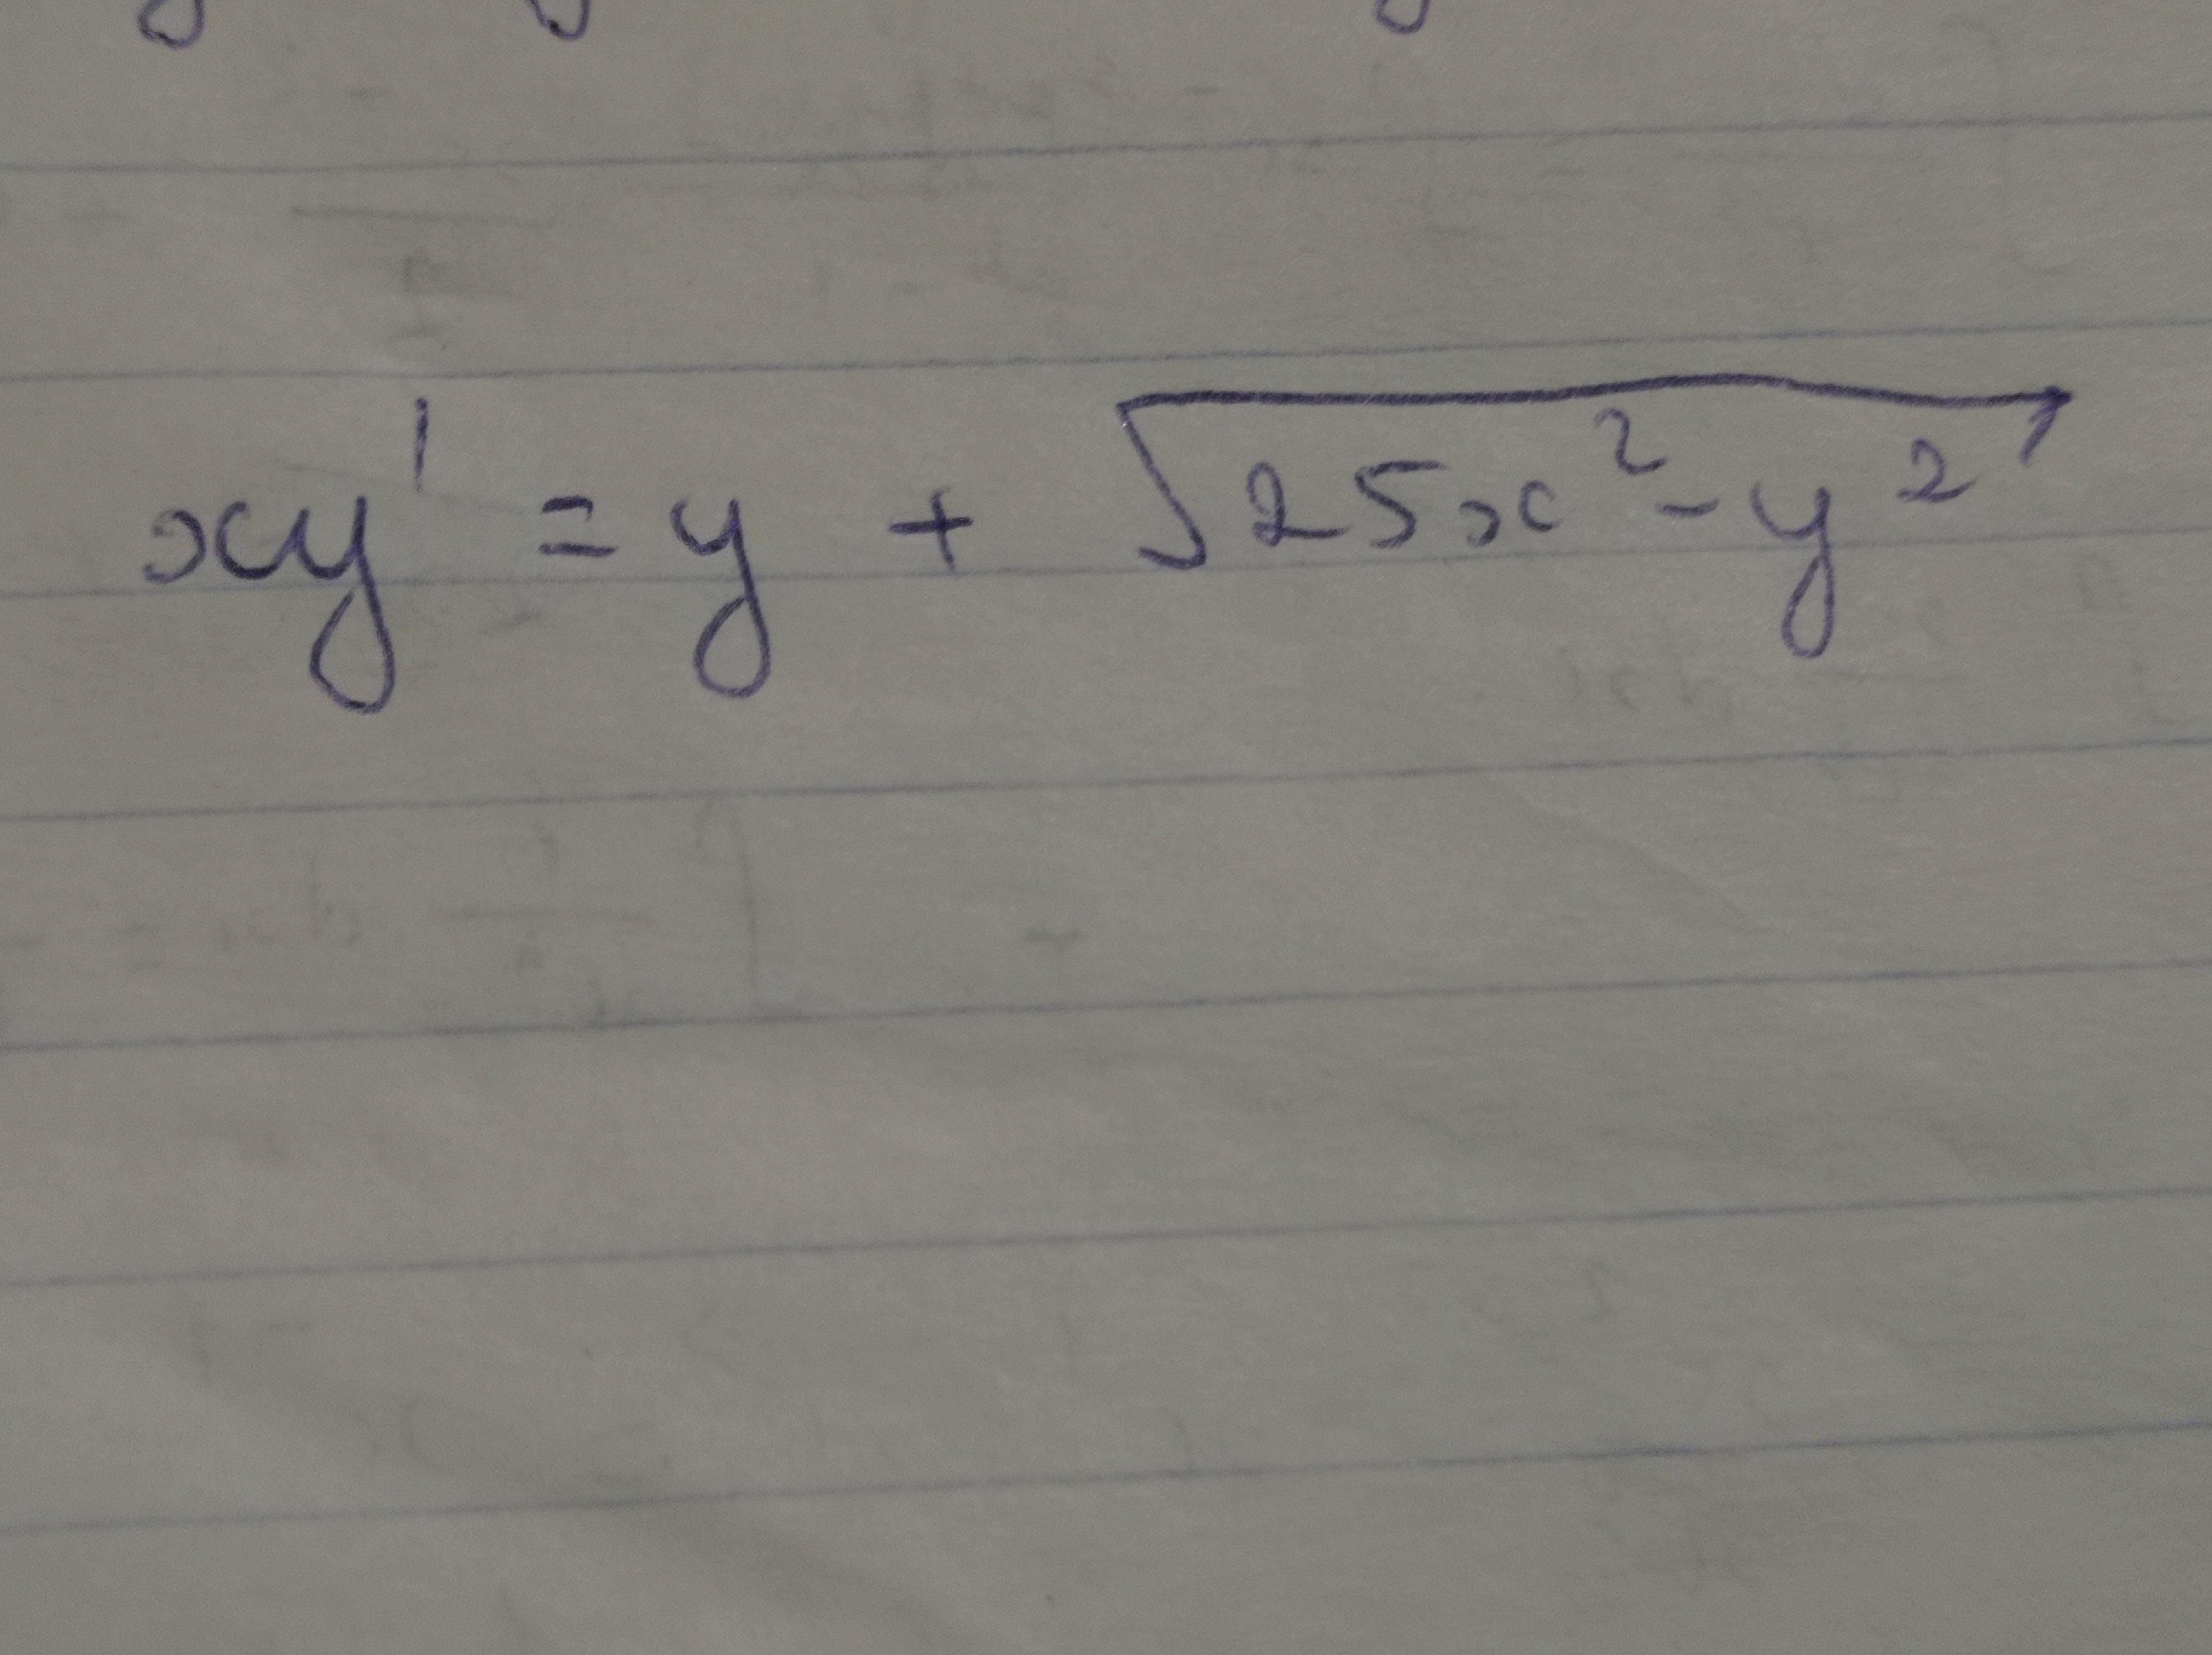 xy' = y + √(25x² - y²)